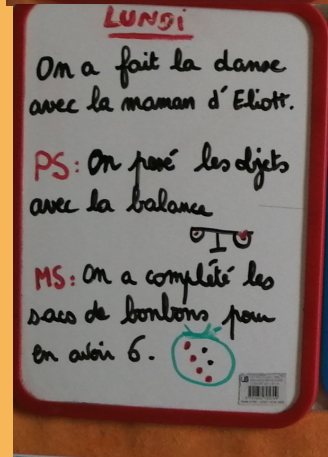 LUNDI
On a fait la danse
avec la maman d'Eliott.
PS: On pesé les objets
avec la balance
MS: On a complété les
sacs de bonbons pour
en avoir 6.